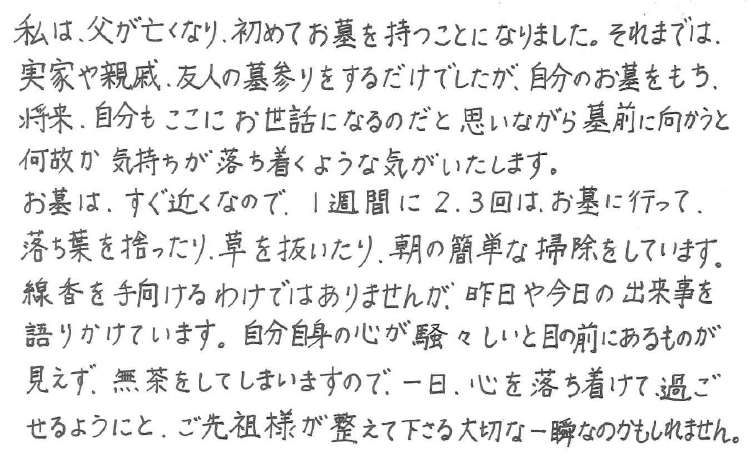 私は、父が亡くなり、初めてお墓を持つことになりました。それまでは、
実家や親戚、友人の墓参りをするだけでしたが、自分のお墓をもち、
将来、自分もここにお世話になるのだと思いながら墓前に向かうと
何故か気持ちが落ち着くような気がいたします。
お墓は、すぐ近くなので、1週間に2.3回は、お墓に行って、
落ち葉を捨ったり、草を抜いたり、朝の簡単な掃除をしています。
線香を手向けるわけではありませんが、昨日や今日の出来事を
語りかけています。自分自身の心が騒々しいと目の前にあるものが
見えず、無茶をしてしまいますので、一日、心を落ち着けて、過ご
せるようにと、ご先祖様が整えて下さる大切な一瞬なのかもしれません。